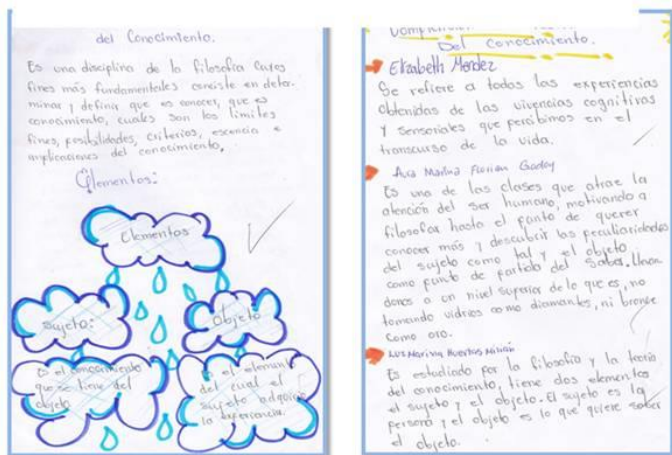 del Conocimiento.
Es una disciplina de la filosofía cuyos
fines más fundamentales consiste en deter-
minar y definir que es conocer, que es
conocimiento, cuales son los limites
fines, posibilidades, criterios, escencia e
implicaciones del conocimiento.
Elementos:
Elementos
Sujeto:
Objeto
Es el conocimiento
que se tiene del
objeto
Es el element
del cual el
sujeto adquiere
la experiencia.
Del conocimiento.
Elizabeth Mendez
Se refiere a todas las experiencias
Obtenidas de las vivencias cognitivas
y sensoriales que percibimos en el
transcurso de la vida.
Ana Marina Florian Godoy
Es una de las clases que atrae la
atención del ser humano, motivando a
filosofar hasta el punto de querer
conocer más y descubrir las peculiaridades
del sujeto como tal y el objeto
como punto de partida del saber.
donos a un nivel superior de lo que es, no
tomando vidrios como diamantes, ni bronce
como oro.
Luz Marina Huertas
Es estudiado por la filosofía y la teoria
del conocimiento, tiene dos elementos
el sujeto y el objeto. El sujeto es la
persona y el objeto es lo que quiere saber
el objeto.